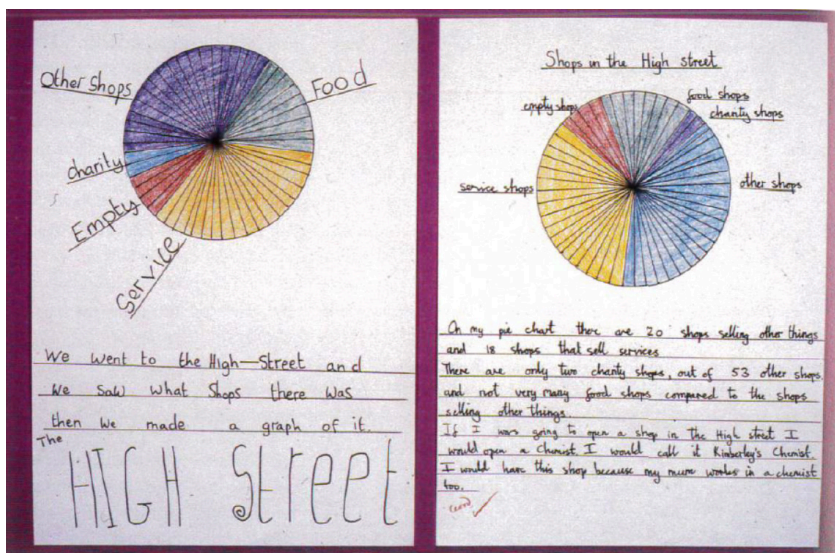 Other Shops
Food
charity
Empty
Service
We went to the High-Street and
we saw what Shops there was
then we made a graph of it.
The
HIGH Street
Shops in the High street
empty shops
food shops
charity shops
service shops
other shops
On my pie chart there are 20 shops selling other things
and 18 shops that sell services
There are only two charity shops, out of 53 other shops.
and not very many food shops compared to the shops
selling other things.
If I was going to open a shop in the High street I
would open a Chemist. I would call it Kimberley's Chemist.
I would have this shop because my mum works in a chemist
too.
Good